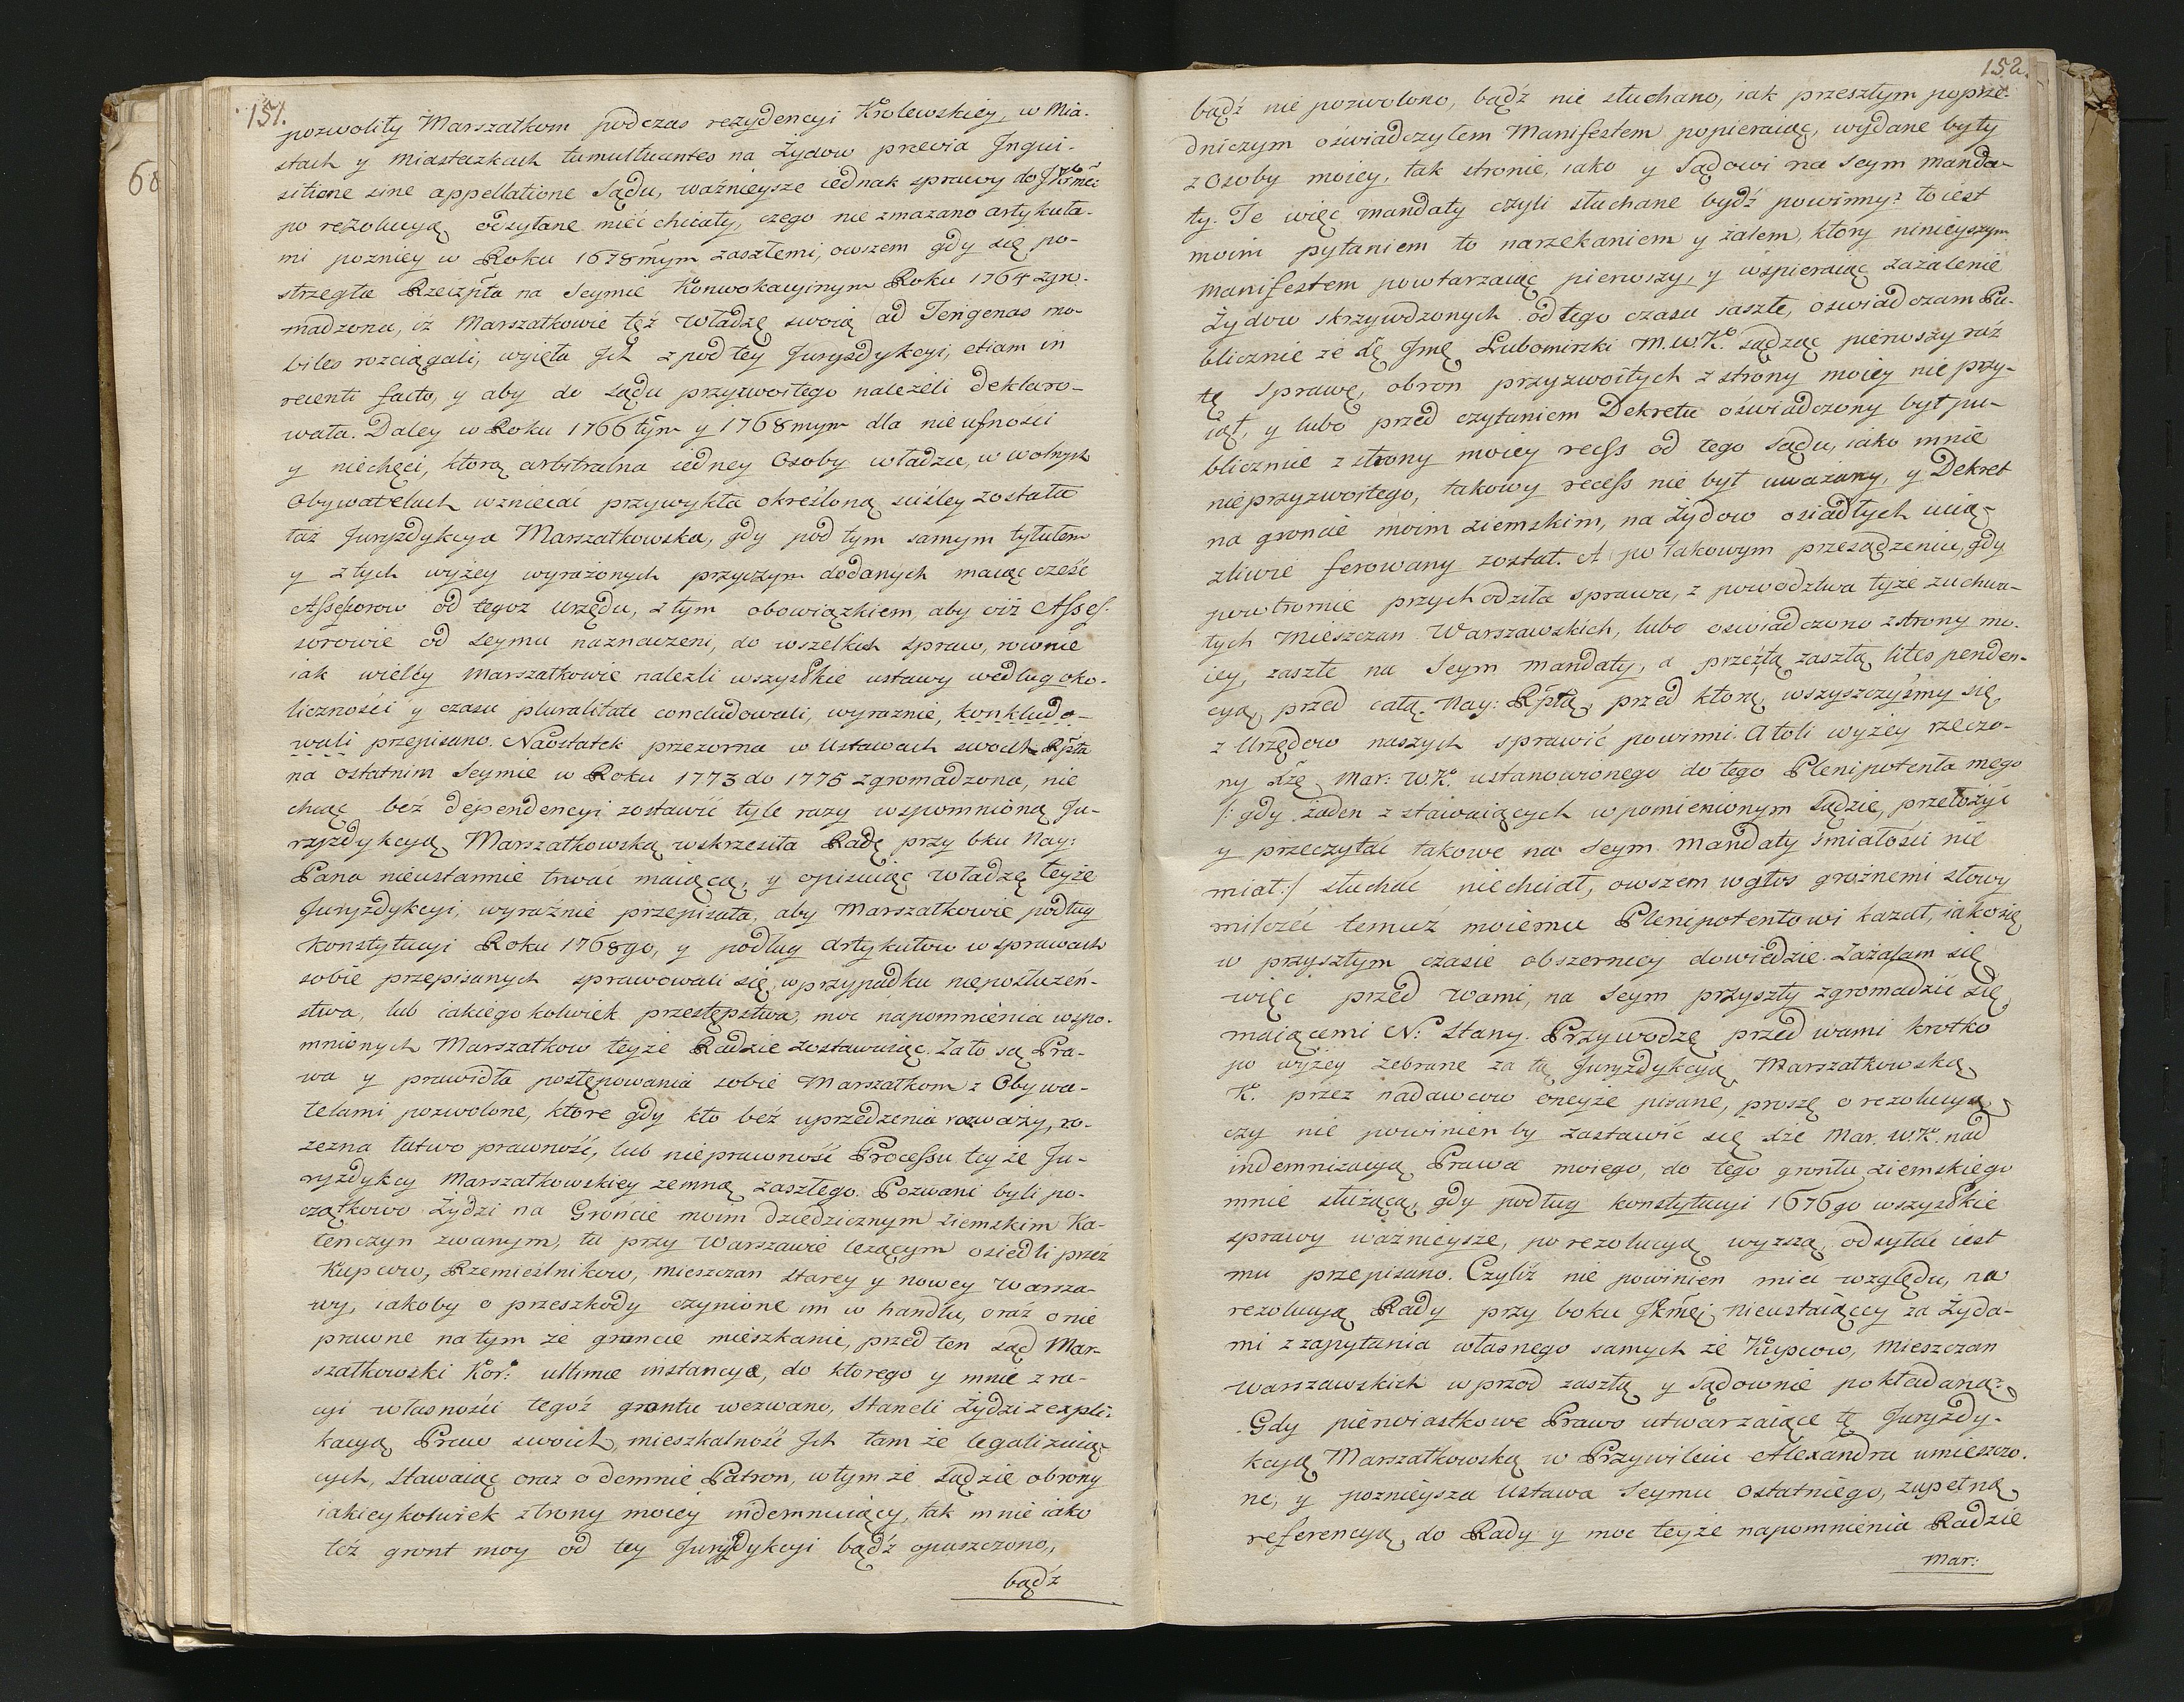 151.
pozwoliły Marszałkom podczas rezydencyi Krolewskiey, w Mia-
stach y miasteczkach tumultuantes na Żydow previa Inqui-
sitione sine appellatione Sądu, ważnieysze iednak sprawy do JKmci
po rezolucyą odsyłane mieć chciały, czego nie zmazano artykuła-
mi pozniey w Roku 1678mym zaszłemi, owszem gdy się po-
strzegła Rzeczpta na Seymie Konwokacyinym Roku 1764 zgro-
madzona, iż Marszałkowie też Władzę swoią ad Tengenas no-
biles rozciągali, wyięła Ich z pod tey Juryzdykcyi, etiam in
recenti facto, y aby do sądu przyzwoitego należeli deklaro-
wała. Daley w Roku 1766tym y 1768mym dla nie ufności
y niechęci, ktorą arbitralna iedney Osoby władza, w wolnych
Obywatelach wzniecać przywykła określoną ściśley została
taż Juryzdykcya Marszałkowska, gdy pod tym samym tytułem
y z tych wyżey wyrażonych przyczyn dodanych maiąc cześć
Assessorow od tegoż urzędu, z tym obowiązkiem, aby ciż Asses-
sorowie od Seymu naznaczeni, do wszelkich spraw, rownie
iak wielcy Marszałkowie nalezli wszystkie ustawy według oko-
liczności y czasu pluralitate concludowali, wyraznie, konkludo-
wali przepisano. Naostatek przezorna w Ustawach swoich Rpta
na ostatnim Seymie w Roku 1773 do 1775 zgromadzona, nie
chcąc beż dependencyi zostawić tyle razy wspomnioną Ju-
ryzdykcyą Marszałkowską wskrzesiła Radę przy bku Nay:
Pana nieustannie trwać maiącą, y opisuiąc władzę teyże
Juryzdykcyi, wyraźnie przepisała, aby Marszałkowie podług
Konstytucyi Roku 1768go, y podług Artykułow w sprawach
sobie przepisanych sprawowali się, w przypadku nieposłuzeń-
stwa, lub iakiego kolwiek przestępstwa, moc napomnienia wspo-
mnionych Marszałkow teyże Radzie zostawuiąc. Za to są Pra-
wa y prawidła postępowania sobie Marszałkom z Obywa-
telami pozwolone, ktore gdy kto beż uprzedzenia rozważy, ro-
zezna łatwo prawność, lub nieprawność Processu teyże Ju-
ryzdykcy Marszałkowskiey zemną zaszłego. Pozwani byli po-
czątkowo Żydzi na Gróncie moim dziedzicznym ziemskim Ka-
tenczyn zwanym, tu przy Warszawie lezącym osiedli przeż
Kupcow, Rzemieślnikow, mieszczan Starey y nowey Warsza-
wy, iakoby o przeszkody czynione im w handlu, oraż o nie
prawne na tym że gruncie mieszkanie, przed ten sąd Mar-
szałkowski Kor: ultimæ instancyæ, do ktorego y mnie z ra-
cyi własności tegoż gruntu wezwano, Staneli Żydzi z expli-
kacyą Praw swoich, mieszkalność Ich tam że legalizuią-
cych, Stawaiąc oraz odemnie Patron, w tym że Sądzie obrony
iakieykolwiek z strony moiey indemnuiący, tak mnie iako
też gront moy od tey Juryzdykcyi bądź opuszczono,
bądź
152.
bądź nie pozwolono, bądź nie słuchano, iak przeszłym poprze-
dniczym oświadczyłem Manifestem popieraiąc, wydane były
z Osoby moiey, tak stronie, iako y Sądowi na Seym manda-
ty. Te więc mandaty czyli słuchane bydź powinny? to iest
moim pytaniem to narzekaniem y żalem, ktory ninieyszym
manifestem powtarzaiąc pierwszy, y wspieraiąc zażalenie
Żydow skrzywdzonych od tego czasu zaszłe, oswiadczam Pu-
blicznie że Jmę Lubomirski M.W.K. sądząc pierwszy raż
tę Sprawę, obron przyzwoitych z strony moiey nie przy-
iął, y lubo przed czytaniem Dekretu oświadczony był pu-
blicznie z strony moiey recess od tego Sądu, iako mnie
nieprzyzwoitego, takowy recess nie był uważany, y Dekret
na groncie moim ziemskim, na Żydow osiadłych ucią-
zliwie ferowany został. A po takowym przesądzeniu, gdy
powtornie przychodziła sprawa, z powodztwa tyże zuchwa-
łych Mieszczan Warszawskich, lubo oswiadczono z strony mo-
iey, zaszłe na Seym mandaty, a przeżtą zaszłą litis penden-
cyą, przed całą Nay: Rptą, przed ktorą wszyszczyśmy się
z Urzędow naszych sprawić powinni. Atoli wyżey rzeczo-
ny Xżę Mar: W.K. ustanowionego do tego Plenipotenta mego
/: gdy żaden z stawaiących w pomienionym Sądzie, przełożyć
y przeczytać takowe na Seym mandaty śmiałości nie
miał:/ słuchać niechciał, owszem w głos groźnemi słowy
milczeć temuż moiemu Plenipotentowi kazał, iako się
w przyszłym czasie obszerniey dowiedzie. Zażalam się
więc przed Wami, na Seym przyszły zgromadzić się
maiącemi N: Stany. Przywodzę przed wami krotko
po wyżey zebrane za tą Juryzdykcyą Marszałkowską
K. przez nadawcow oneyże pisane, proszę o rezolucyą
czy nie powinien by zastawić się Xże Mar. W.K. nad
indemnizacyą Prawa moiego, do tego gruntu ziemskiego
mnie służącą, gdy podług konstytucyi 1676go wszystkie
sprawy ważnieysze, po rezolucyą wyzszą, odsyłać iest
mu przepisano. Czyliż nie powinien mieć względu, na
rezolucyą Rady przy boku JKmci nieustaiącey za Żyda-
mi z zapytania własnego samych że Kupcow, Mieszczan
Warszawskich wprzod zaszłą y sądownie pokładaną?
Gdy pierwiastkowe Prawo utwarzaiące tę Juryzdy-
kcyą Marszałkowską w Przywileiu Alexandra umieszczo-
ne, y poznieysza Ustawa Seymu ostatniego, zupełną
referencyą do Rady y moc teyże napomnienia Radzie
Mar: